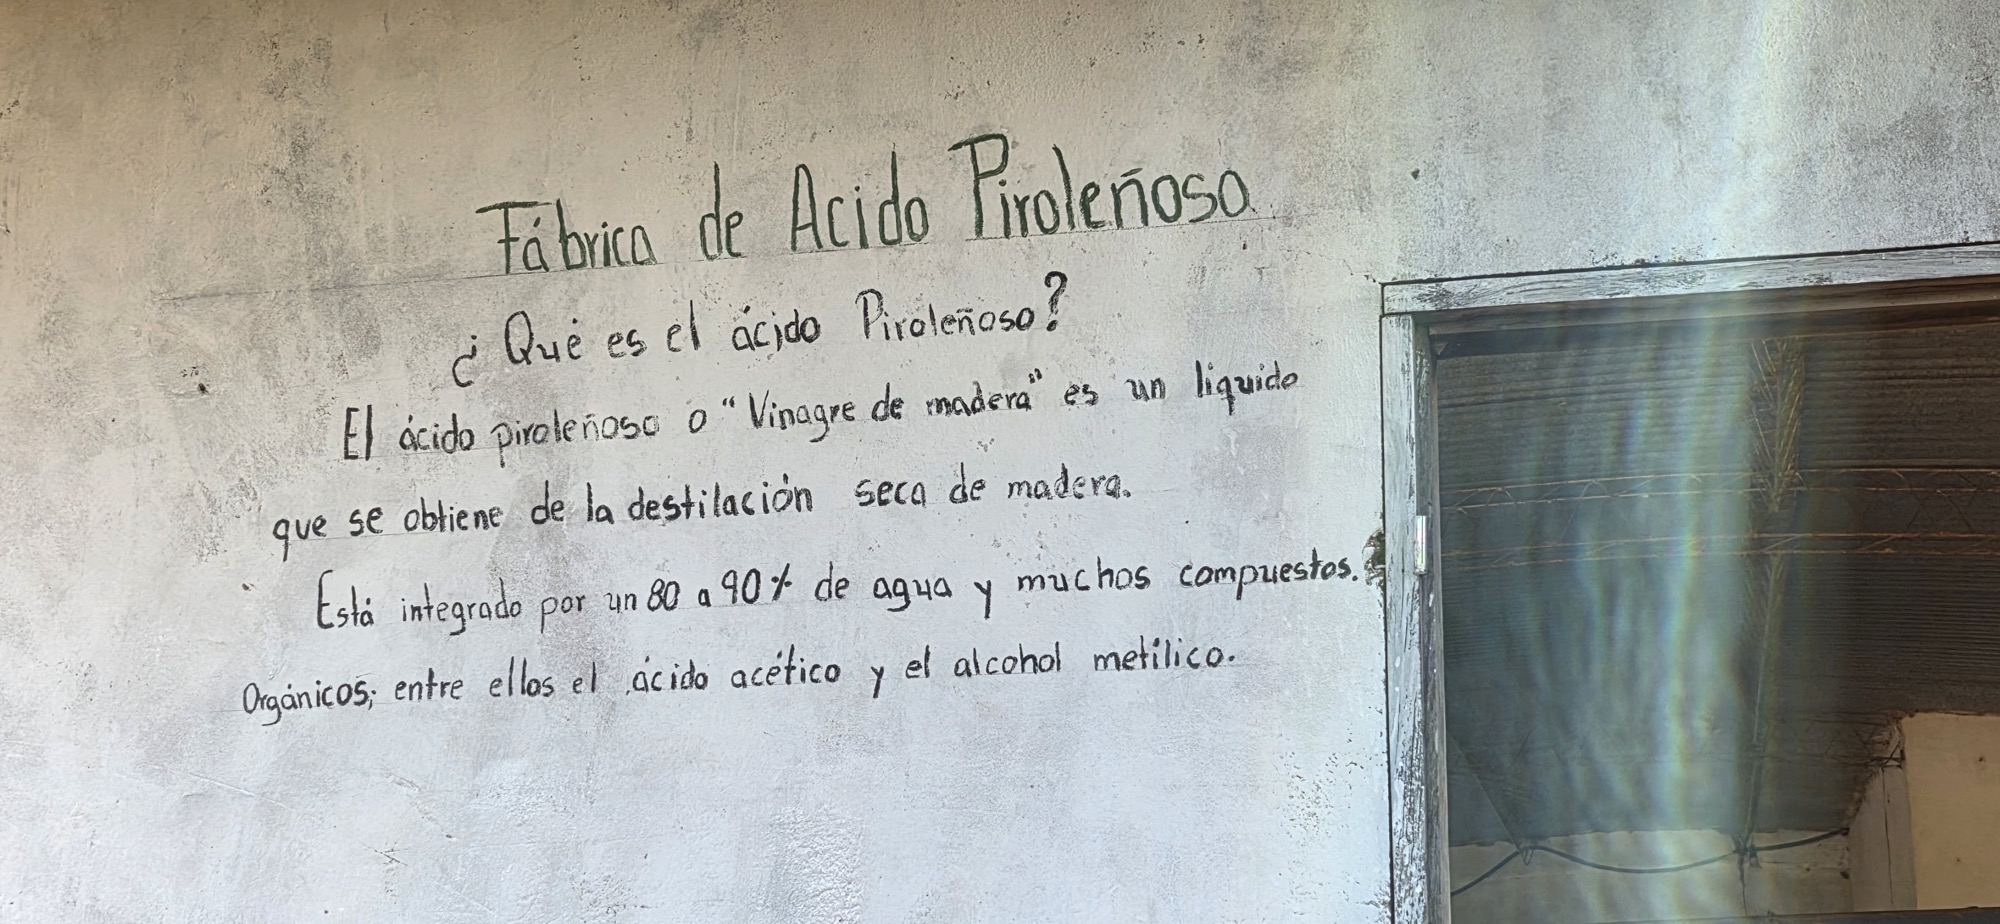 Fábrica de Acido Piroleñoso
¿Qué es el ácido Piroleñoso?
El ácido piroleñoso o "Vinagre de madera" es un líquido
que se obtiene de la destilación seca de madera.
Está integrado por un 80 a 90% de agua y muchos compuestos.
Orgánicos; entre ellos el ácido acético y el alcohol metílico.